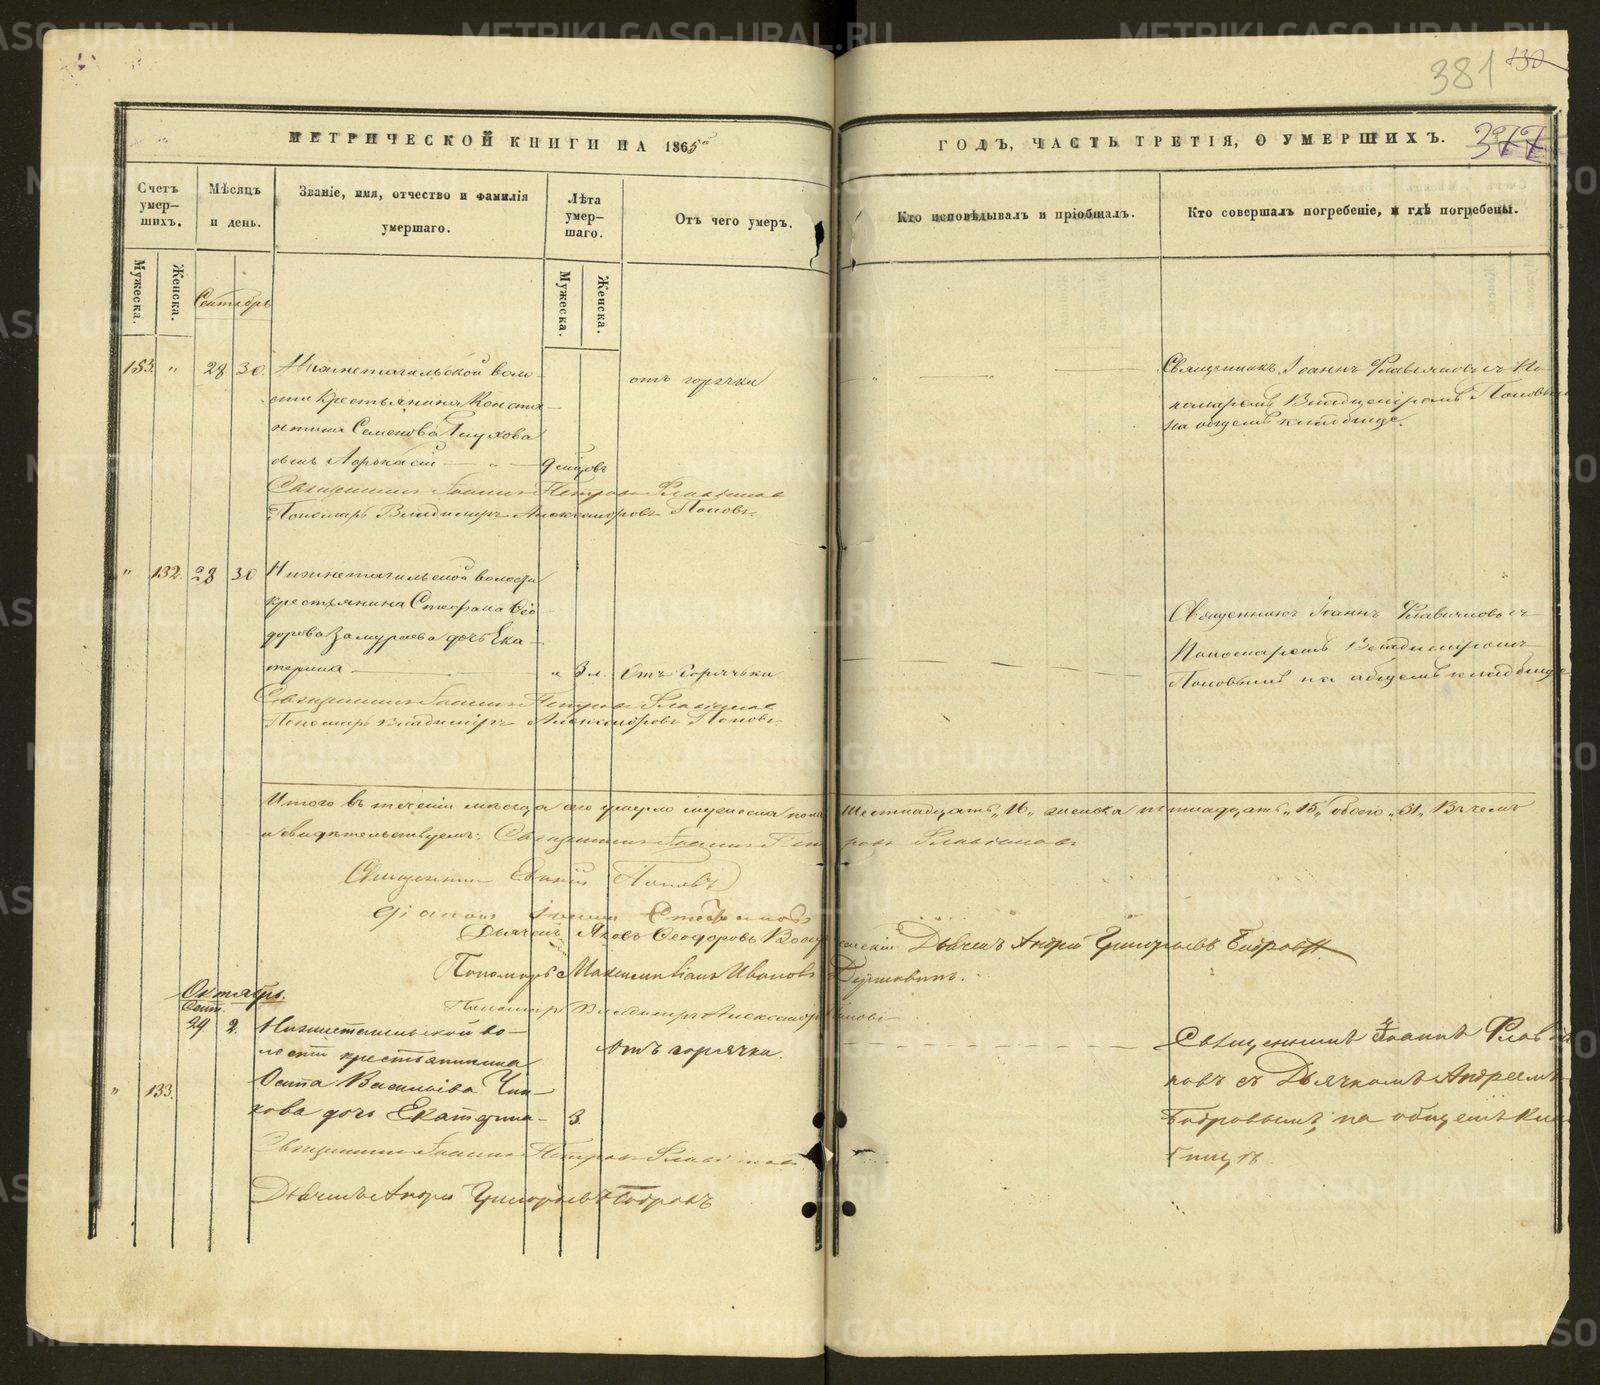 381
МЕТРИЧЕСКОЙ КНИГИ НА 1865
ГОДЪ, ЧАСТЬ ТРЕТІЯ, О УМЕРШИХЪ.
377
Счетъ умер-
шихъ.
Мѣсяцъ
и день.
Званіе, имя, отчество и фамилія
умершаго.
Лѣта
умер-
шаго.
Отъ чего умеръ.
Кто исповѣдывалъ и пріобщалъ.
Кто совершалъ погребеніе, и гдѣ погребены.
Мужеска.
Женска.
Мужеска.
Женска.
Сентябрь
153. " 28 30. Нижнетагильской воло-
сти крестьянина Конста-
нтина Семенова Глухова
сынъ Афонасій 9 мѣсяцовъ
отъ горячки
Священникъ Іоаннъ Флавіановъ съ По-
номаремъ Владиміромъ Поповымъ
на общемъ кладбище.
Священникъ Іоаннъ Петровъ Флавіановъ
Пономарь Владимиръ Александровъ Поповъ.
" 132. 28 30 Нижнетагильской волости
крестьянина Стефана Ѳео-
дорова Замураева дочь Ека-
терина " 3 л. Отъ горячьки
Священникъ Іоаннъ Флавіановъ съ
Пономаремъ Владимиромъ
Поповымъ на общемъ кладбище
Священникъ Іоаннъ Петровъ Флавіановъ
Пономарь Владиміръ Александровъ Поповъ.
Итого въ теченіи мѣсяца сего умерло мужеска пола Шестнадцать "16" женска пятнадцать "15" обоего "31" Въ чемъ
и свидѣтельствуемъ: Священникъ Іоаннъ Петровъ Флавіановъ
Священникъ Поповъ
Діаконъ Іоаннъ
Дьячекъ Яковъ Ѳеодоровъ Дьячекъ Андрей Григорьевъ Бобровъ.
Пономарь Максимиліанъ Ивановъ
Пономарь Владимиръ Александровъ Поповъ
Октябрь.
Сент.
29 2. Нижнетагильской во-
лости крестьянина
" 133. Осипа Васильева
дочь Екатерина 3
отъ горячки.
Священникъ Іоаннъ Флавіа-
новъ съ Дьячкомъ Андреемъ
Бобровымъ, на общемъ клад-
бищѣ
Священникъ Іоаннъ Петровъ Флавіановъ
Дьячекъ Андрей Григорьевъ Бобровъ
METRIKI.GASO-URAL.RU